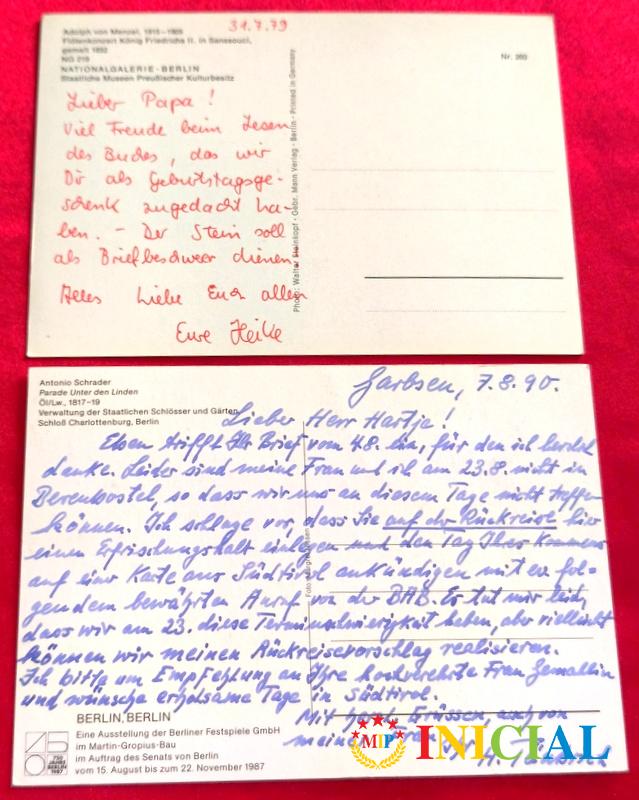 31.7.79
Adolph von Menzel, 1815–1905
Flötenkonzert König Friedrichs II. in Sanssouci,
gemalt 1852
NG 219
NATIONALGALERIE · BERLIN
Staatliche Museen Preußischer Kulturbesitz
Nr. 260
Lieber Papa!
Viel Freude beim Lesen
des Buches, das wir
Dir als Geburtstagsge-
schenk zugedacht ha-
ben. – Der Stein soll
als Briefbeschwerer dienen.
Alles Liebe Euch allen
Eure Heike
Photo: Walter Steinkopf · Gebr. Mann Verlag · Berlin · Printed in Germany
Antonio Schrader
Parade Unter den Linden
Öl/Lw., 1817–19
Verwaltung der Staatlichen Schlösser und Gärten,
Schloß Charlottenburg, Berlin
Garbsen, 7.8.90.
Lieber Herr Hartje!
Eben trifft Ihr Brief vom 4.8. ein, für den ich herzl.
danke. Leider sind meine Frau und ich am 23.8. nicht in
Berenbostel, so dass wir uns an diesem Tage nicht treffen
können. Ich schlage vor, dass Sie auf der Rückreise hier
einen Erfrischungshalt einlegen und den Tag Ihres Kommens
auf einer Karte aus Südtirol ankündigen mit fol-
gendem bewährten Anruf von der BAB. Es tut mir leid,
dass wir am 23. diese Terminschwierigkeit haben, aber vielleicht
können wir meinen Rückreisevorschlag realisieren.
Ich bitte um Empfehlung an Ihre hochverehrte Frau Gemahlin
und wünsche erholsame Tage in Südtirol.
Mit Grüssen, auch von
meiner Frau
H.
BERLIN, BERLIN
Eine Ausstellung der Berliner Festspiele GmbH
im Martin-Gropius-Bau
im Auftrag des Senats von Berlin
vom 15. August bis zum 22. November 1987
750
JAHRE
BERLIN
1987
MIP INICIAL